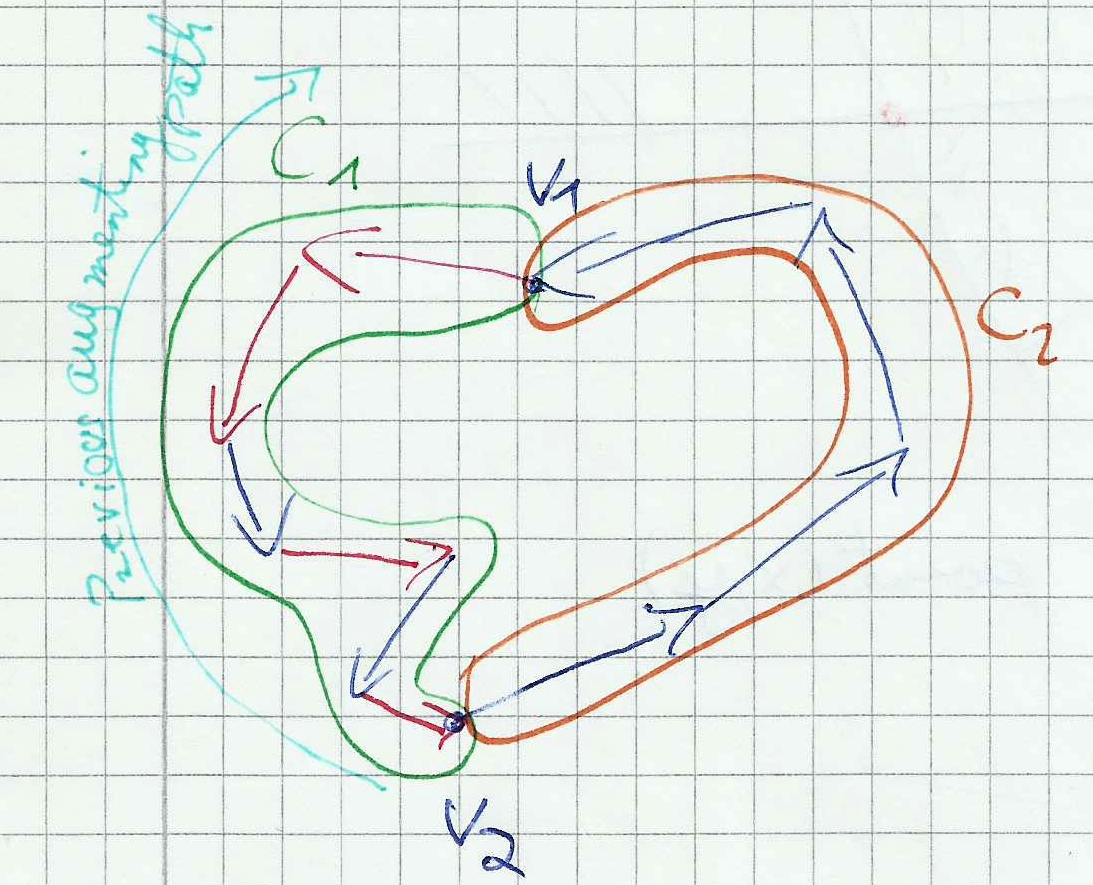 Previous augmenting path
C1
V1
C2
V2